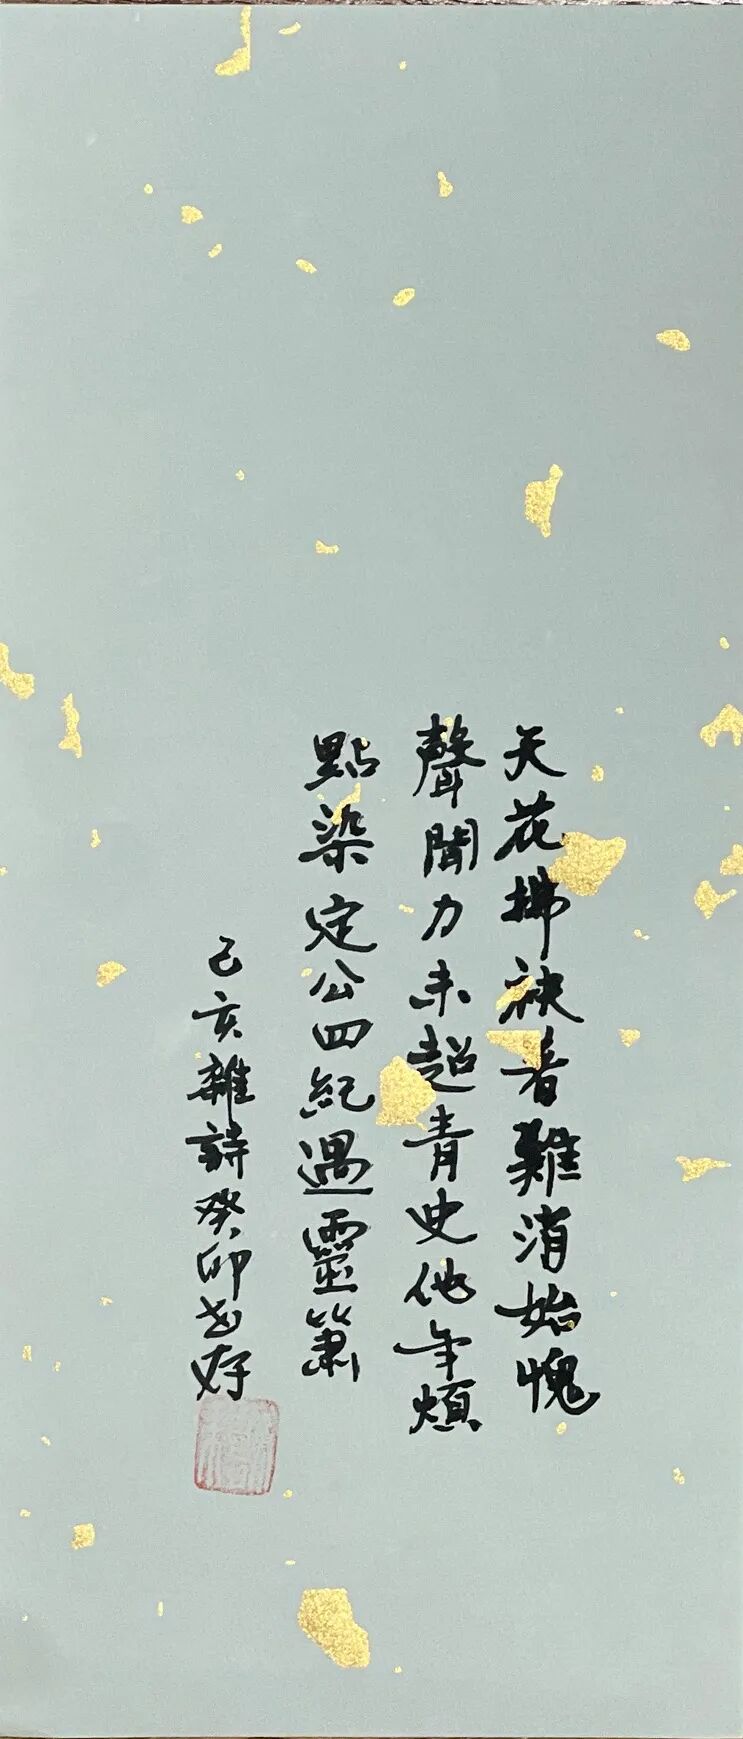 天花拂袂着難消始愧
聲聞力未超青史他年煩
點染定公四紀遇靈簫
己亥雜詩癸卯